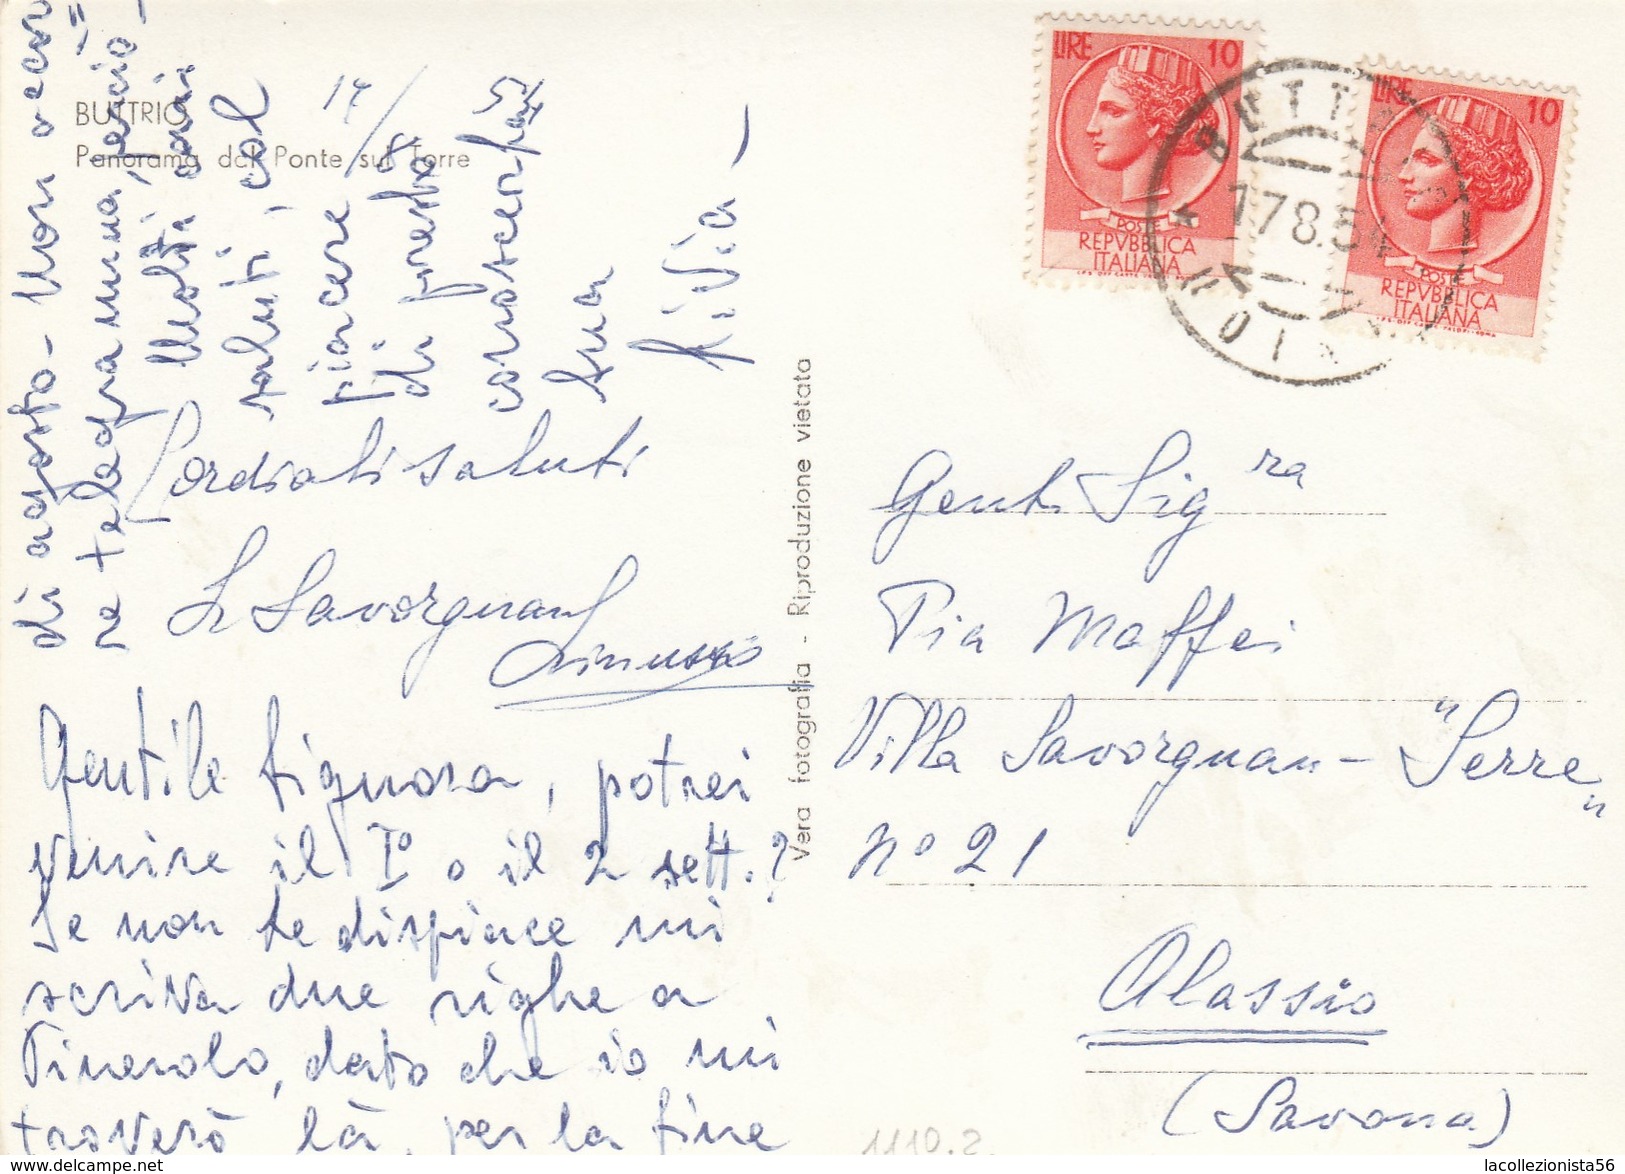 BUTTRIO
Panorama dal Ponte sul Torre
17/8 54
Cordiali saluti
Savorgnan
Gentile Signora, potrei
venire il I° o il 2 sett.?
Se non le dispiace mi
scriva due righe a
Pinerolo, dato che io mi
troverò là, per la fine
di agosto - Non occor=
re telegramma, perciò -
Molti cari
saluti, col
piacere
di presto
conoscerla
Sua
Livia -
Vera fotografia - Riproduzione vietata
LIRE 10
POSTE
REPVBBLICA
ITALIANA
LIRE 10
POSTE
REPVBBLICA
ITALIANA
BUTTRIO
17 8.54
Gent. Sig ra
Pia Maffei
Villa Savorgnan - "Serre"
n° 21
Alassio
(Savona)
1110.2
lacollezionista56